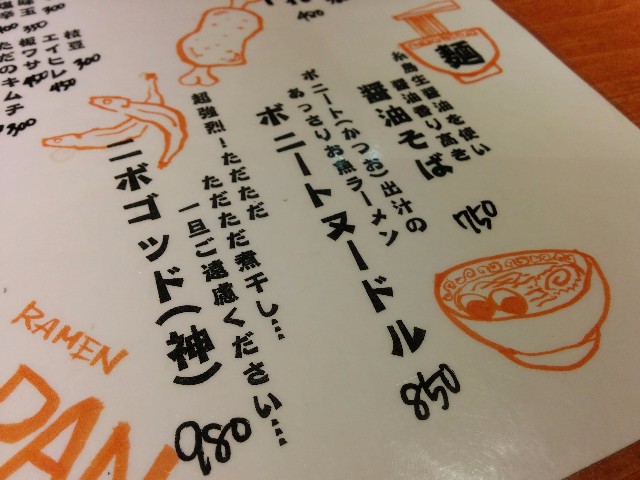 麺
糸島生醤油を使い
醤油香り高き
醤油そば
750
ボニート(かつお)出汁の
あっさりお魚ラーメン
ボニートヌードル
850
超強烈!ただただ
ただただ煮干し…
一旦ご遠慮ください…
ニボゴッド(神)
980
枝豆
300
エイヒレ
450
キムチ
300
RAMEN
DAN